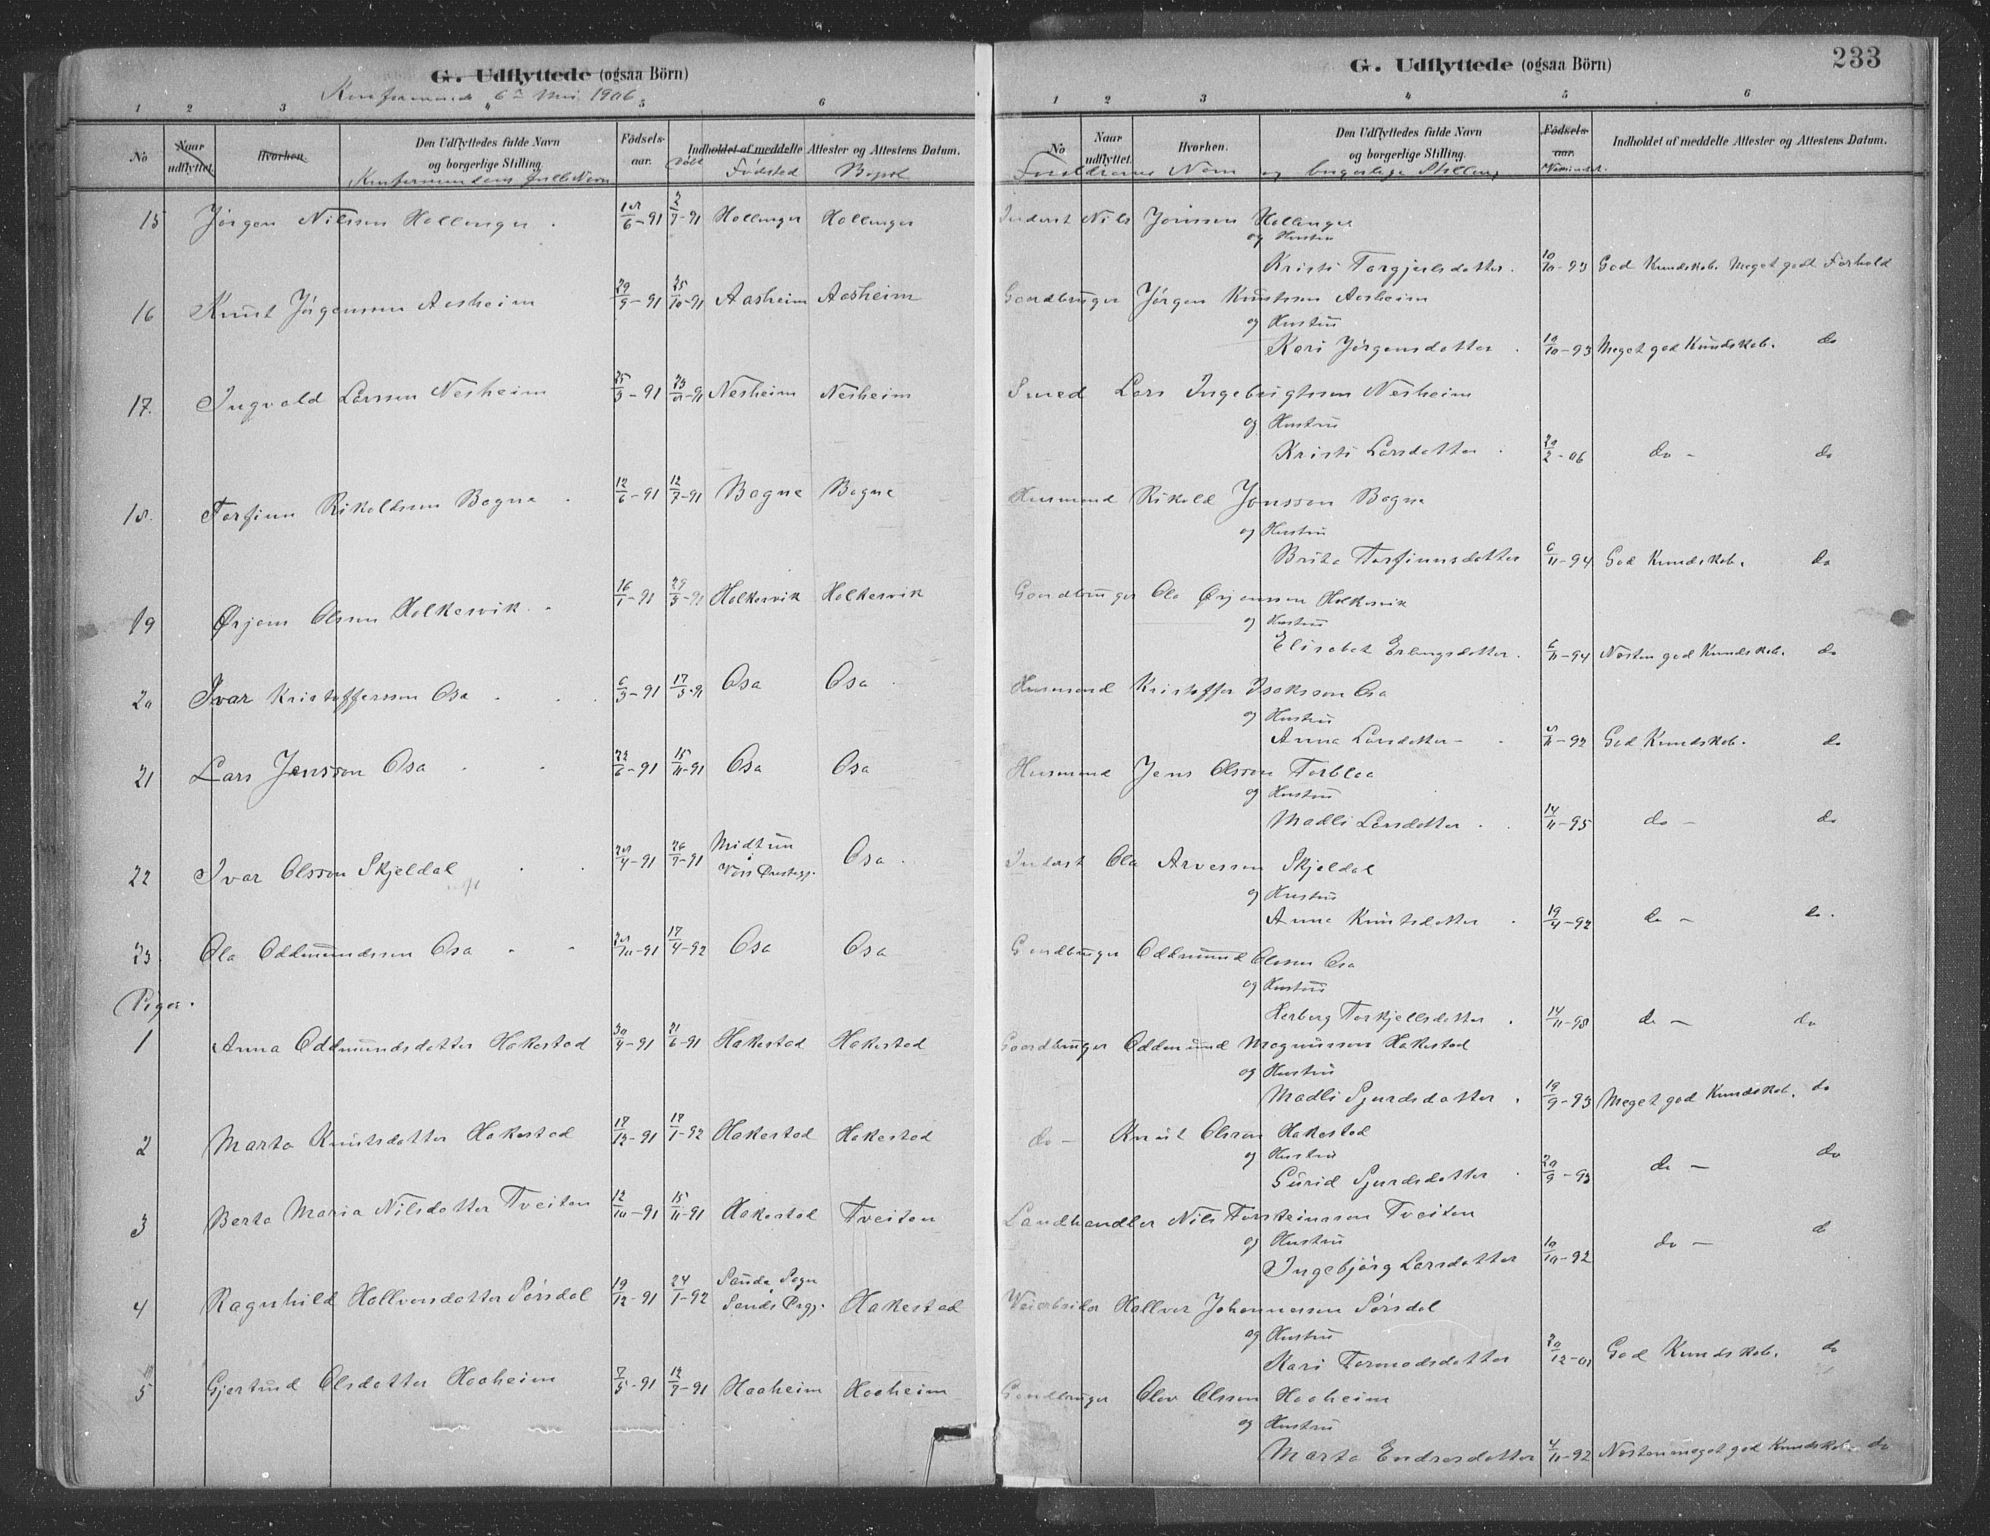 G. Udflyttede (ogsaa Börn)
Konfirmerede 6te Mai 1906.
1 2 3 4 5 6
No
Naar udflyttet.
Hvorhen.
Den Udflyttedes fulde Navn
og borgerlige Stilling.
Konfirmandens fulde Navn
Födsels-
aar.
Döbt
Indholdet af meddelte Attester og Attestens Datum.
Födsted Bopæl
15 Jørgen Nilssen Hollunger 6-91 2/7-91 Hollunger Hollunger
16 Knut Jörgenssen Aasheim 29/9-91 25/10-91 Aasheim Aasheim
17. Ingvald Larssen Nesheim 25/3-91 Nesheim Nesheim
18. Torfinn Rikoldssen Bagne 12/6-91 12/7-91 Bagne Bagne
19 Ørjans Olssen Holkesvik 16/1-91 29/3-91 Holkesvik Holkesvik
20 Ivar Kristoffersson Osa 6/3-91 17/3-91 Osa Osa
21 Lars Jensson Osa 22/6-91 15/11-91 Osa Osa
22 Ivar Olsson Skjeldal 4-91 26/7-91 Midtun
Voss Prestegj. Osa
23 Ola Oddmundssen Osa 10-91 17/4-92 Osa Osa
Piger.
1 Anna Oddmundsdatter Hakestad 30/4-91 21/6-91 Hakestad Hakestad
2 Marta Knutsdatter Hakestad 17/12-91 17/1-92 Hakestad Hakestad
3 Berta Maria Nilsdatter Tveiten 12/10-91 15/11-91 Hakestad Tveiten
4 Ragnhild Hallvorsdatter Sørsdal 19/12-91 24/1-92 Sauda Sogn
Sands Prgj. Hakestad
5 Gjertrud Olsdatter Haaheim 7/5-91 12/7-91 Haaheim Haaheim
G. Udflyttede (ogsaa Börn)
233
1 2 3 4 5 6
No
Naar udflyttet.
Hvorhen.
Den Udflyttedes fulde Navn
og borgerlige Stilling.
Födsels-
aar.
Indholdet af meddelte Attester og Attestens Datum.
Forældrenes Navn og borgerlige Stilling
Inderst Nils Jonssen Hollunger
og Hustru
Kristi Torgjulsdatter. 10/10-93 God Kundskab. Meget godt Forhold
Gaardbruger Jörgen Knutssen Aasheim
og Hustru
Kari Jörgensdatter. 10/10-93 Meget god Kundskab. do
Smed Lars Ingebrigtssen Nesheim
og Hustru
Kristi Larsdatter 20/2-06 do - do
Husmand Rikold Jonsson Bagne
og Hustru
Brita Torfinnsdatter 6/11-94 God Kundskab. do
Gaardbruger Ola Ørjanssen Holkesvik
og Hustru
Elisabet Erlingsdatter. 6/11-94 Næsten god Kundskab. do
Husmand Kristoffer Isaksson Osa
og Hustru
Anna Larsdatter - 11-92 God Kundskab. do
Husmand Jens Olsson Torblaa
og Hustru
Madli Larsdatter. 14/11-95 do - do
Inderst Ola Arvesson Skjeldal
og Hustru
Anna Knutsdatter 19/4-92 do - do.
Gaardbruger Oddmund Olssen Osa
og Hustru
Herborg Torkjellsdatter. 14/11-98 do - do
Gaardbruger Oddmund Magnussen Hakestad
og Hustru
Madli Sjurdsdatter. 19/9-93 Meget god Kundskab. do
do - Knut Olsson Hakestad
og Hustru
Gurid Sjurdsdatter 20/9-93 do - do
Landhandler Nils Torsteinssen Tveiten
og Hustru
Ingebjörg Larsdatter 10/10-92 do - do
Hallvor Johannessen Sørsdal
og Hustru
Kari Tormodsdatter 20/12-01 God Kundskab. do
Gaardbruger Olav Olssen Haaheim
og Hustru
Marta Endresdatter 4/11-92 Næsten meget god Kundskab do